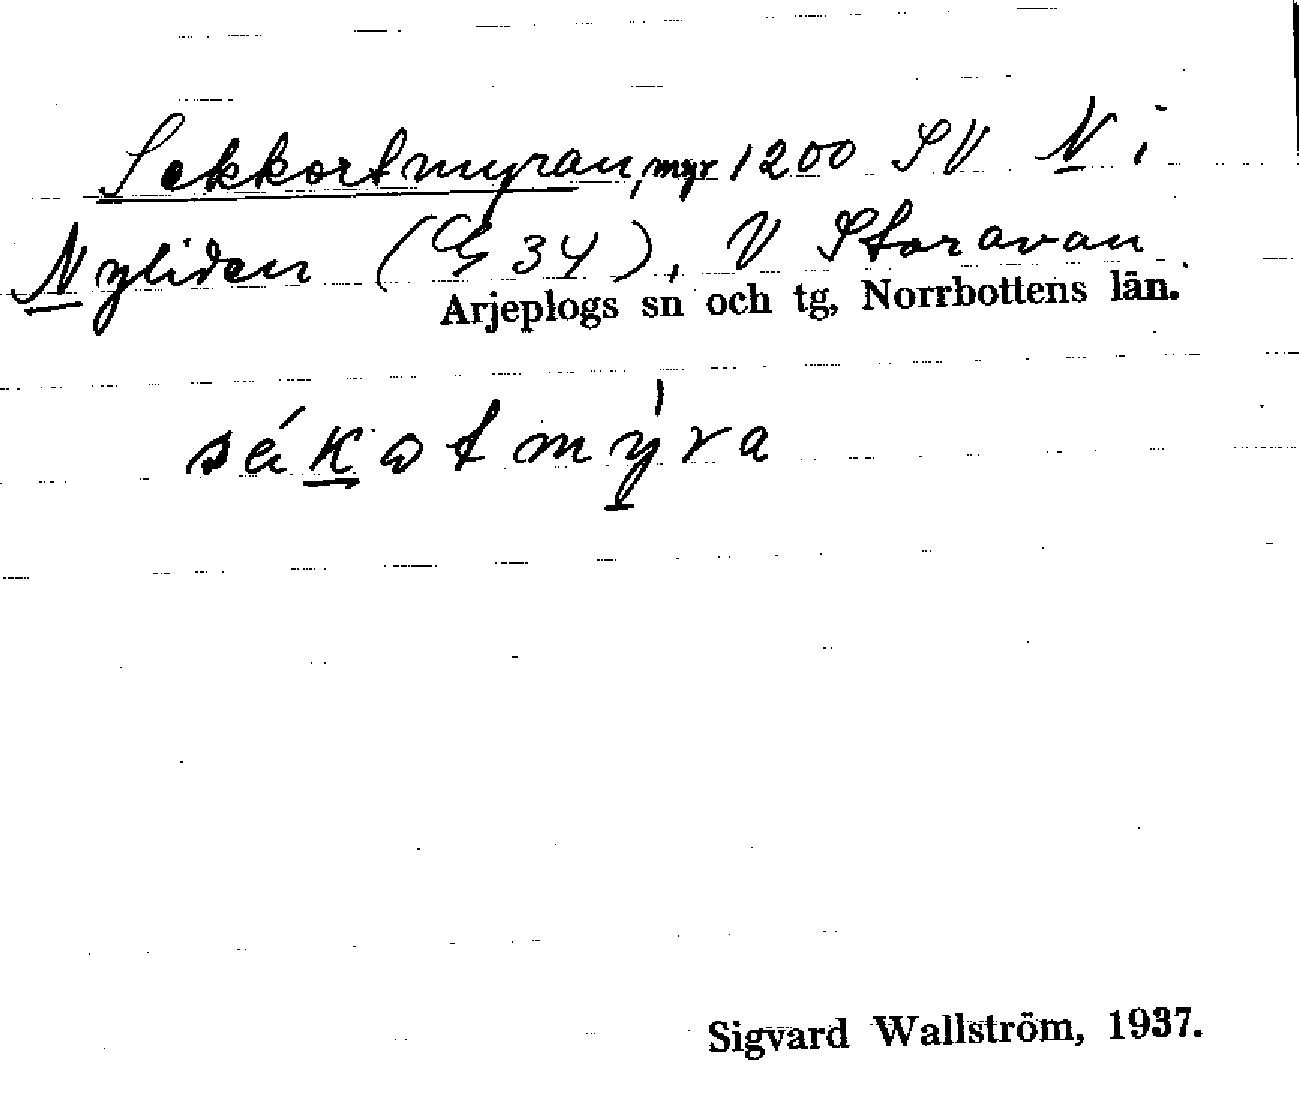 Sekkortmyran, myr 1200 SV N i
Nyliden (G 34), V Storavan
Arjeplogs sn och tg, Norrbottens län.
sékotmy̍ra
Sigvard Wallström, 1937.